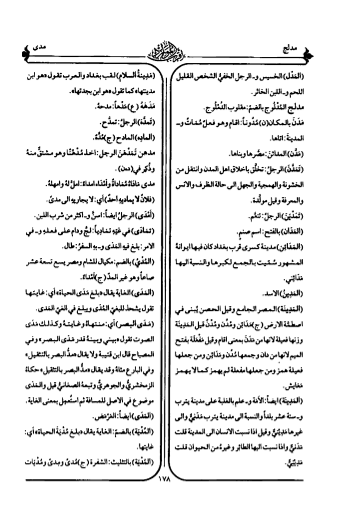 مدلج
مدى
(المَذِل) الخسيس و- الرجل الخفيّ الشخص القليل
اللحم و- اللبن الخاثر.
مدلج المُدْلُوج بالضمّ: مقلوب الدُمْلُوج.
مَدَنَ بالمكان (ن) مُدُوناً: أقام وهو فعلٌ مُمَاتٌ و-
المدينة: أتاها.
(مَدَّنَ) المدائن: مصّرها وبناها.
(تَمَدَّنَ) الرجلُ: تخلّق بأخلاق أهل المدن وانتقل من
الخشونة والهمجية والجهل إلى حالة الظرف والأنس
والمعرفة وقيل مولّدة.
(تَمَدْيَنَ) الرجلُ: تنعّم.
(المَدَان) بالفتح: اسم صنم.
(المَدَائِن) مدينة كسرى قرب بغداد كان فيها ايوانهُ
المشهور سُمّيت بالجمع لكبرها والنسبة اليها
مَدَائِنِيّ.
(المَدِينُ) الأسد.
(المَدِينَة) المصر الجامع وقيل الحصن يُبنى في
اصطمّة الأرض (ج) مَدَائِن ومُدُن ومُدْن قيل المَدِينَة
وزنها فعيلة لأنها من مَدَنَ بمعنى أقام وقيل مَفْعِلَة بفتح
الميم لأنها من دان وجمعها مُدُن ومَدَائِن ومن جعلها
فعيلة همز ومن جعلها مفعلة لم يهمز كما لا يهمز
مَعَايش.
(المَدِينَة) أيضاً: الأمَة و- علم بالغلبة على مدينة يثرب
و- ستة عشر بلداً والنسبة إلى مدينة يثرب مَدَنِيّ وإلى
غيرها مَدِينِيّ وقيل إذا نسبت الانسان إلى المدينة قلت
مَدَنِيّ وإذا نسبت اليها الطائر وغيره من الحيوان قلت
مَدِينِيّ.
(مَدِينَةُ السلام) لقب بغداد والعرب تقول «هو ابن
مدينتها» كما تقول «هو ابن بجدتها».
مَدَهَهُ (ع) مَدْهاً: مدحهُ.
(تَمَدَّهَ) الرجلُ: تمدّح.
(المادِه) المادح (ج) مُدَّه.
مدهن تَمَدْهَنَ الرجل: أخذ مُدْهُنًا وهو مشتقّ منهُ
وذُكر في (دهن).
مدى مَادَاهُ مُمَادَاةً وأمْدَاه إمداءً: أمليَ لهُ وأمهلهُ.
(فلانٌ لا يماديهِ أحد) أي: لا يجاريه إلى مدىً.
(أمْدَى) الرجلُ أيضاً: أسنّ و- أكثر من شرب اللبن.
(تمادى) في غيّهِ تمادِياً: لجّ ودام على فعلهِ و- في
الأمر: بلغ فيه المَدَى و- بهِ السفرُ: طال.
(المُدْيُ) بالضم: مكيال للشام ومصر يسع تسعة عشر
صاعاً وهو غير المدّ (ج) أمْدَاء.
(المَدَى) الغاية يقال «بلغ مَدَى الحياة» أي: غايتها
تقول شحذ للبغي المُدَى وبلغ في الغيّ المَدَى.
(مَدَى البصر) أي: منتهاهُ وغايتهُ وكذلك مَدَى
الصوت تقول «بيني وبينهُ قدر مَدَى البصر» وفي
المصباح قال ابن قتيبة ولا يقال «مدّ البصر بالتثقيل»
وفي البارع مثلهُ وقد يقال «مدّ البصر بالتثقيل» حكاهُ
الزمخشريّ والجوهريّ وتبعهُ الصغانيّ قيل والمَدَى
موضوع في الأصل للمسافة ثم استُعمل بمعنى الغاية.
(المَدَى) أيضاً: العَرْمَض.
(المُدْيَة) بالضمّ: الغاية يقال «بلغ مُدْيَة الحياة» أي:
غايتها.
(المُدْيَة) بالتثليث: الشفرة (ج) مُدىً ومِدىً ومُدْيات
١٧٨